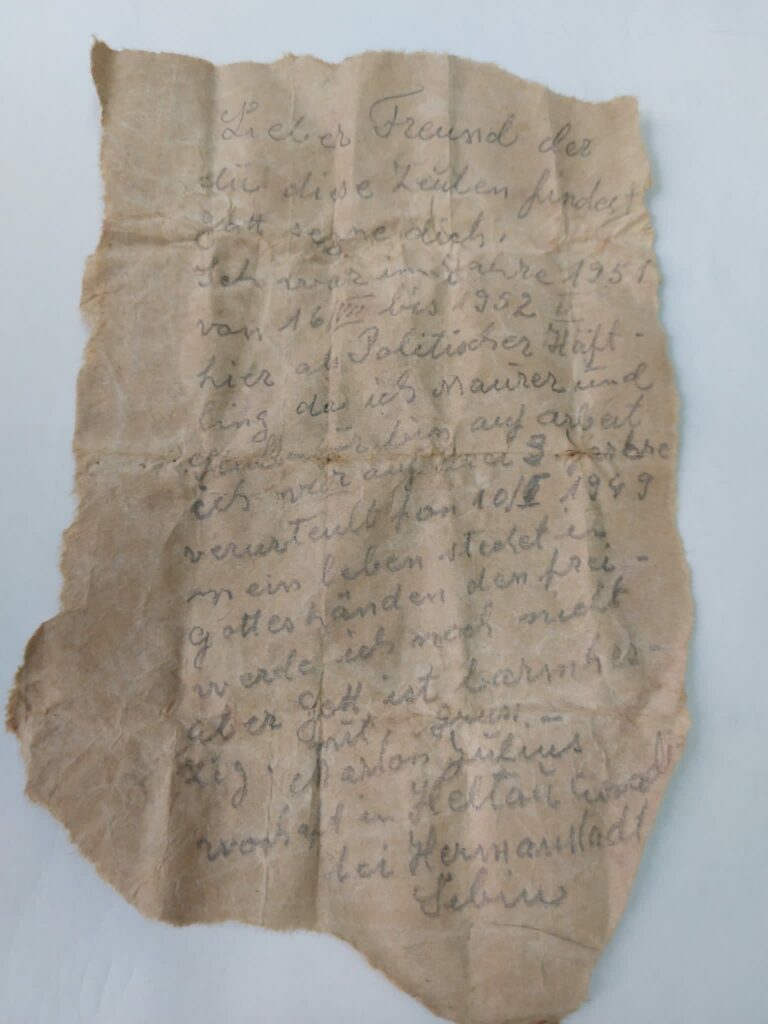 Lieber Freund der
du diese Zeulen findest
gott segne dich.
Ich war im Jahre 1951
von 16/III bis 1952 II
hier als Politischer Häft-
ling da ich Maurer und
bin auf arbeit
ich war auf 3 jahre
verurteult von 10/I 1949
mein leben stehet in
gotteshänden den frei-
werde ich noch nicht
aber gott ist barmher-
zig. mit gruss.-
Marton Julius
wohaft in Heltau
bei Hermanstadt
Sebiu